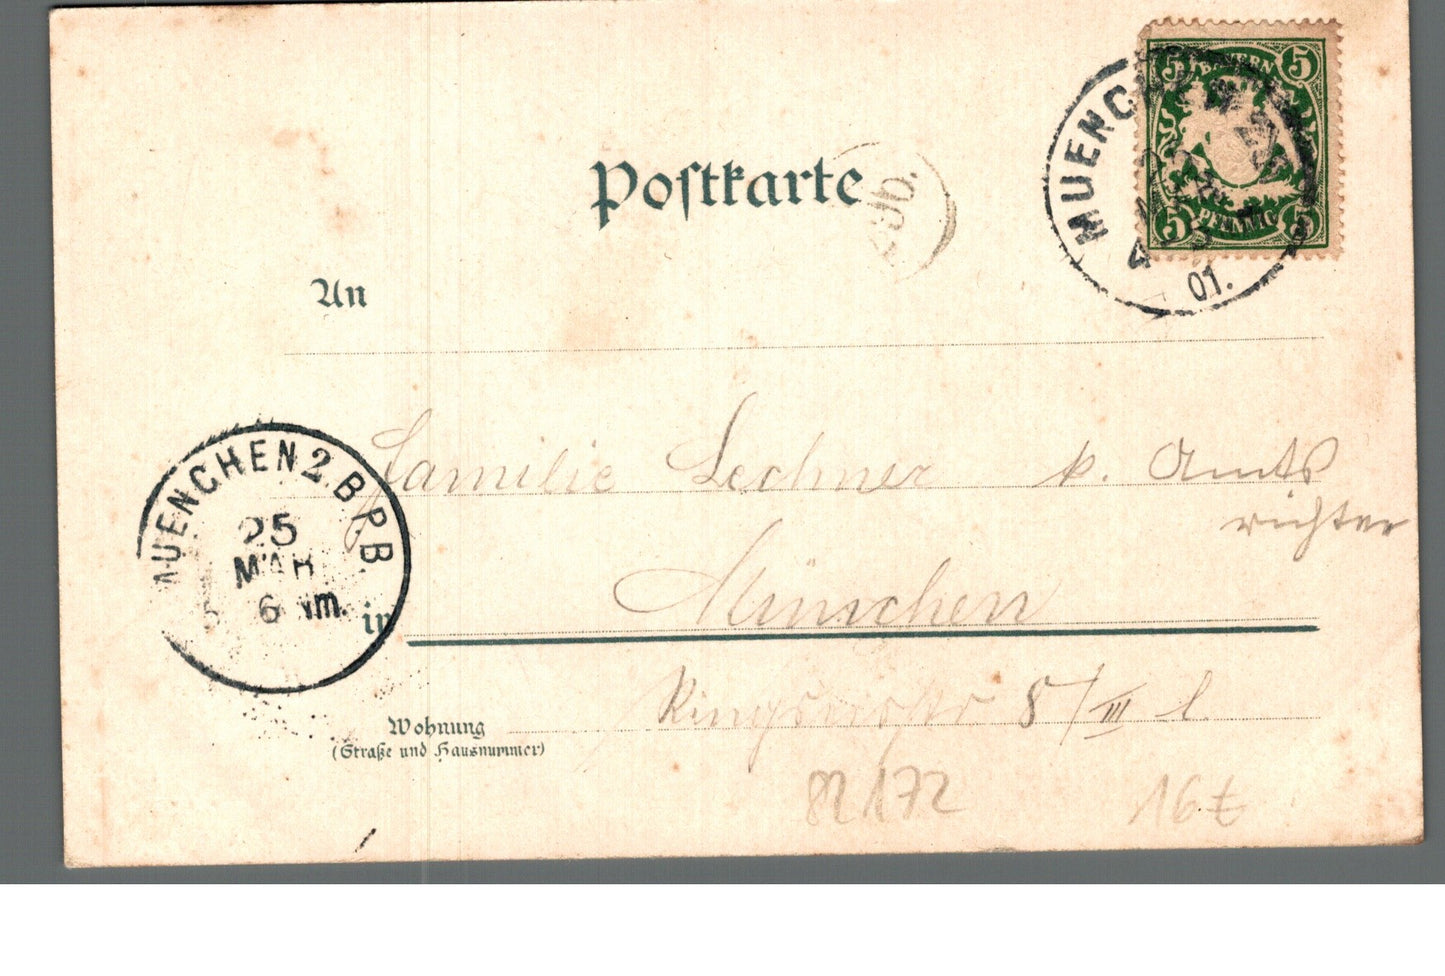 BAYERN
5 5
5 PFENNIG 5
MUENCHEN
4-5
01.
Postkarte
An
Familie Lechner k. Amts
richter
MUENCHEN 2. B.P.B
25
MAR
6 Nm.
in München
8/III l.
Wohnung
(Straße und Hausnummer)
82172 16